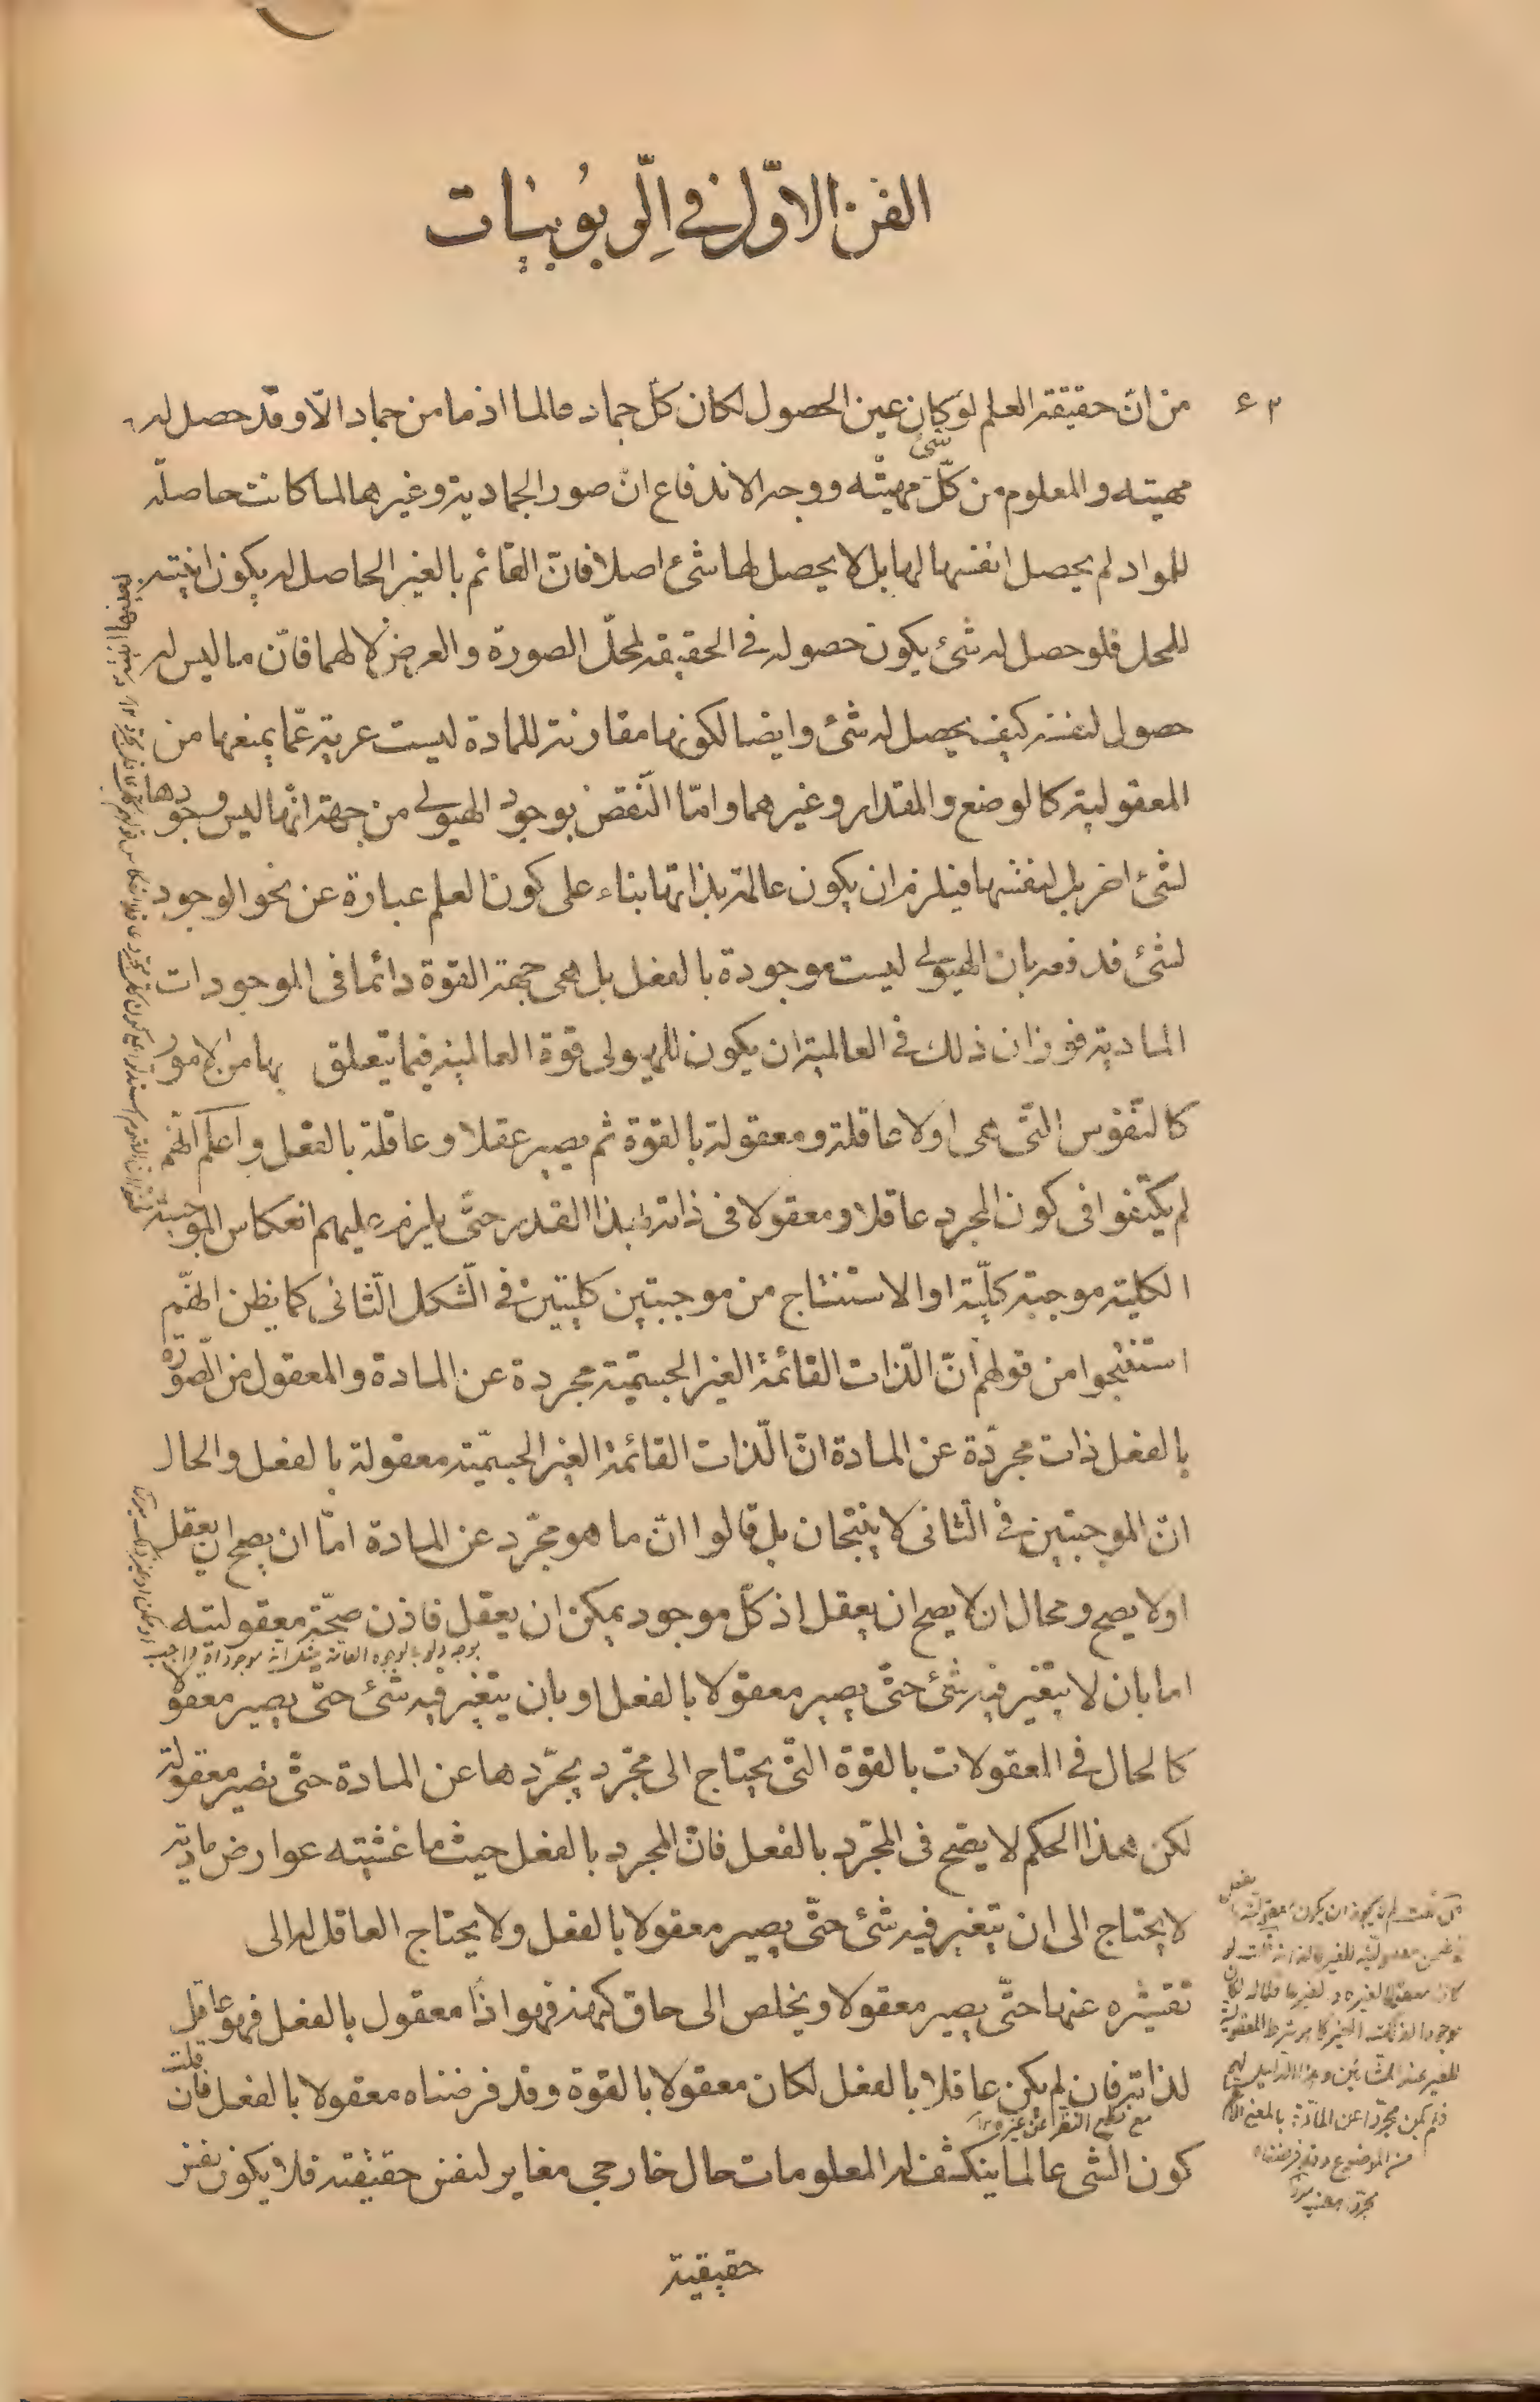 الفن الاوّل في الرّبوبيات
٤٣
من انّ حقيقة العلم لو كان عين الحصول لكان كلّ جماد عالما اذ ما من جماد الّا وقد حصل له
مهيته والمعلوم من كلّ شئ مهيته ووجه الاندفاع انّ صور الجمادية وغيرها لما كانت حاصلة
للمواد لم يحصل انفسها لها بل لا يحصل لها شئ اصلا فانّ القائم بالغير الحاصل له يكون انيته
للمحل فلو حصل له شئ يكون حصوله في الحقيقة لمحلّ الصورة والعرض لا لهما فانّ ما ليس له
حصول لنفسه كيف يحصل له شئ وايضا لكونها مقارنة للمادة ليست عرية عمّا يمنعها من
المعقولية كالوضع والمقدار وغيرهما وامّا النّقض بوجود الهيولى من جهة انّها ليس وجودها
لشئ اخر بل لنفسها فيلزم ان يكون عالمة بذاتها بناء على كون العلم عبارة عن نحو الوجود
لشئ فدفعه بان الهيولى ليست موجودة بالفعل بل هى جهة القوة دائما فى الموجودات
المادية فوزان ذلك في العالمية ان يكون للهيولى قوة العالمية فيما يتعلق بها من الامور
كالنّفوس التّى هى اولا عاقلة ومعقولة بالقوة ثم يصير عقلا وعاقلة بالفعل واعلم انّهم
لم يكتفوا فى كون المجرد عاقلا ومعقولا فى ذاته بهذا القدر حتّى يلزم عليهم انعكاس الموجبة
الكلية موجبة كلّية او الاستنتاج من موجبتين كليتين في الشّكل الثّانى كما يظن انهّم
استنتجوا من قولهم انّ الذّات القائمة الغير الجسمّية مجردة عن المادة والمعقول من الصّورة
بالفعل ذات مجرّدة عن المادة انّ الذّات القائمة الغير الجسمّية معقولة بالفعل والحال
انّ الموجبتين في الثّانى لا ينتجان بل قالوا انّ ما هو مجرّد عن المادة امّا ان يصح ان يعقل
او لا يصح ومحال ان لا يصح ان يعقل اذ كلّ موجود يمكن ان يعقل فاذن صحّة معقوليته
اما بان لا يتغيّر فيه شئ حتّى يصير معقولا بالفعل او بان يتغير فيه شئ حتّى يصير معقولا
كالحال في المعقولات بالقوّة التّى يحتاج الى مجرّد يجرّدها عن المادة حتّى تصير معقولة
لكن هذا الحكم لا يصّح فى المجرّد بالفعل فانّ المجرد بالفعل حيث ما غشيته عوارض مادية
لا يحتاج الى ان يتغير فيه شئ حتّى يصير معقولا بالفعل ولا يحتاج العاقل له الى
تقشيره عنها حتّى يصير معقولا ويخلص الى حاق كنهه فهو اذاً معقول بالفعل فهو عاقل
لذاته فان لم يكن عاقلا بالفعل لكان معقولا بالقوة وقد فرضناه معقولا بالفعل فان قلت
مع قطع النظر عن غيره
كون الشى عالما ينكشف له المعلومات حال خارجي مغاير لنفس حقيقته فلا يكون نفس
حقيقته